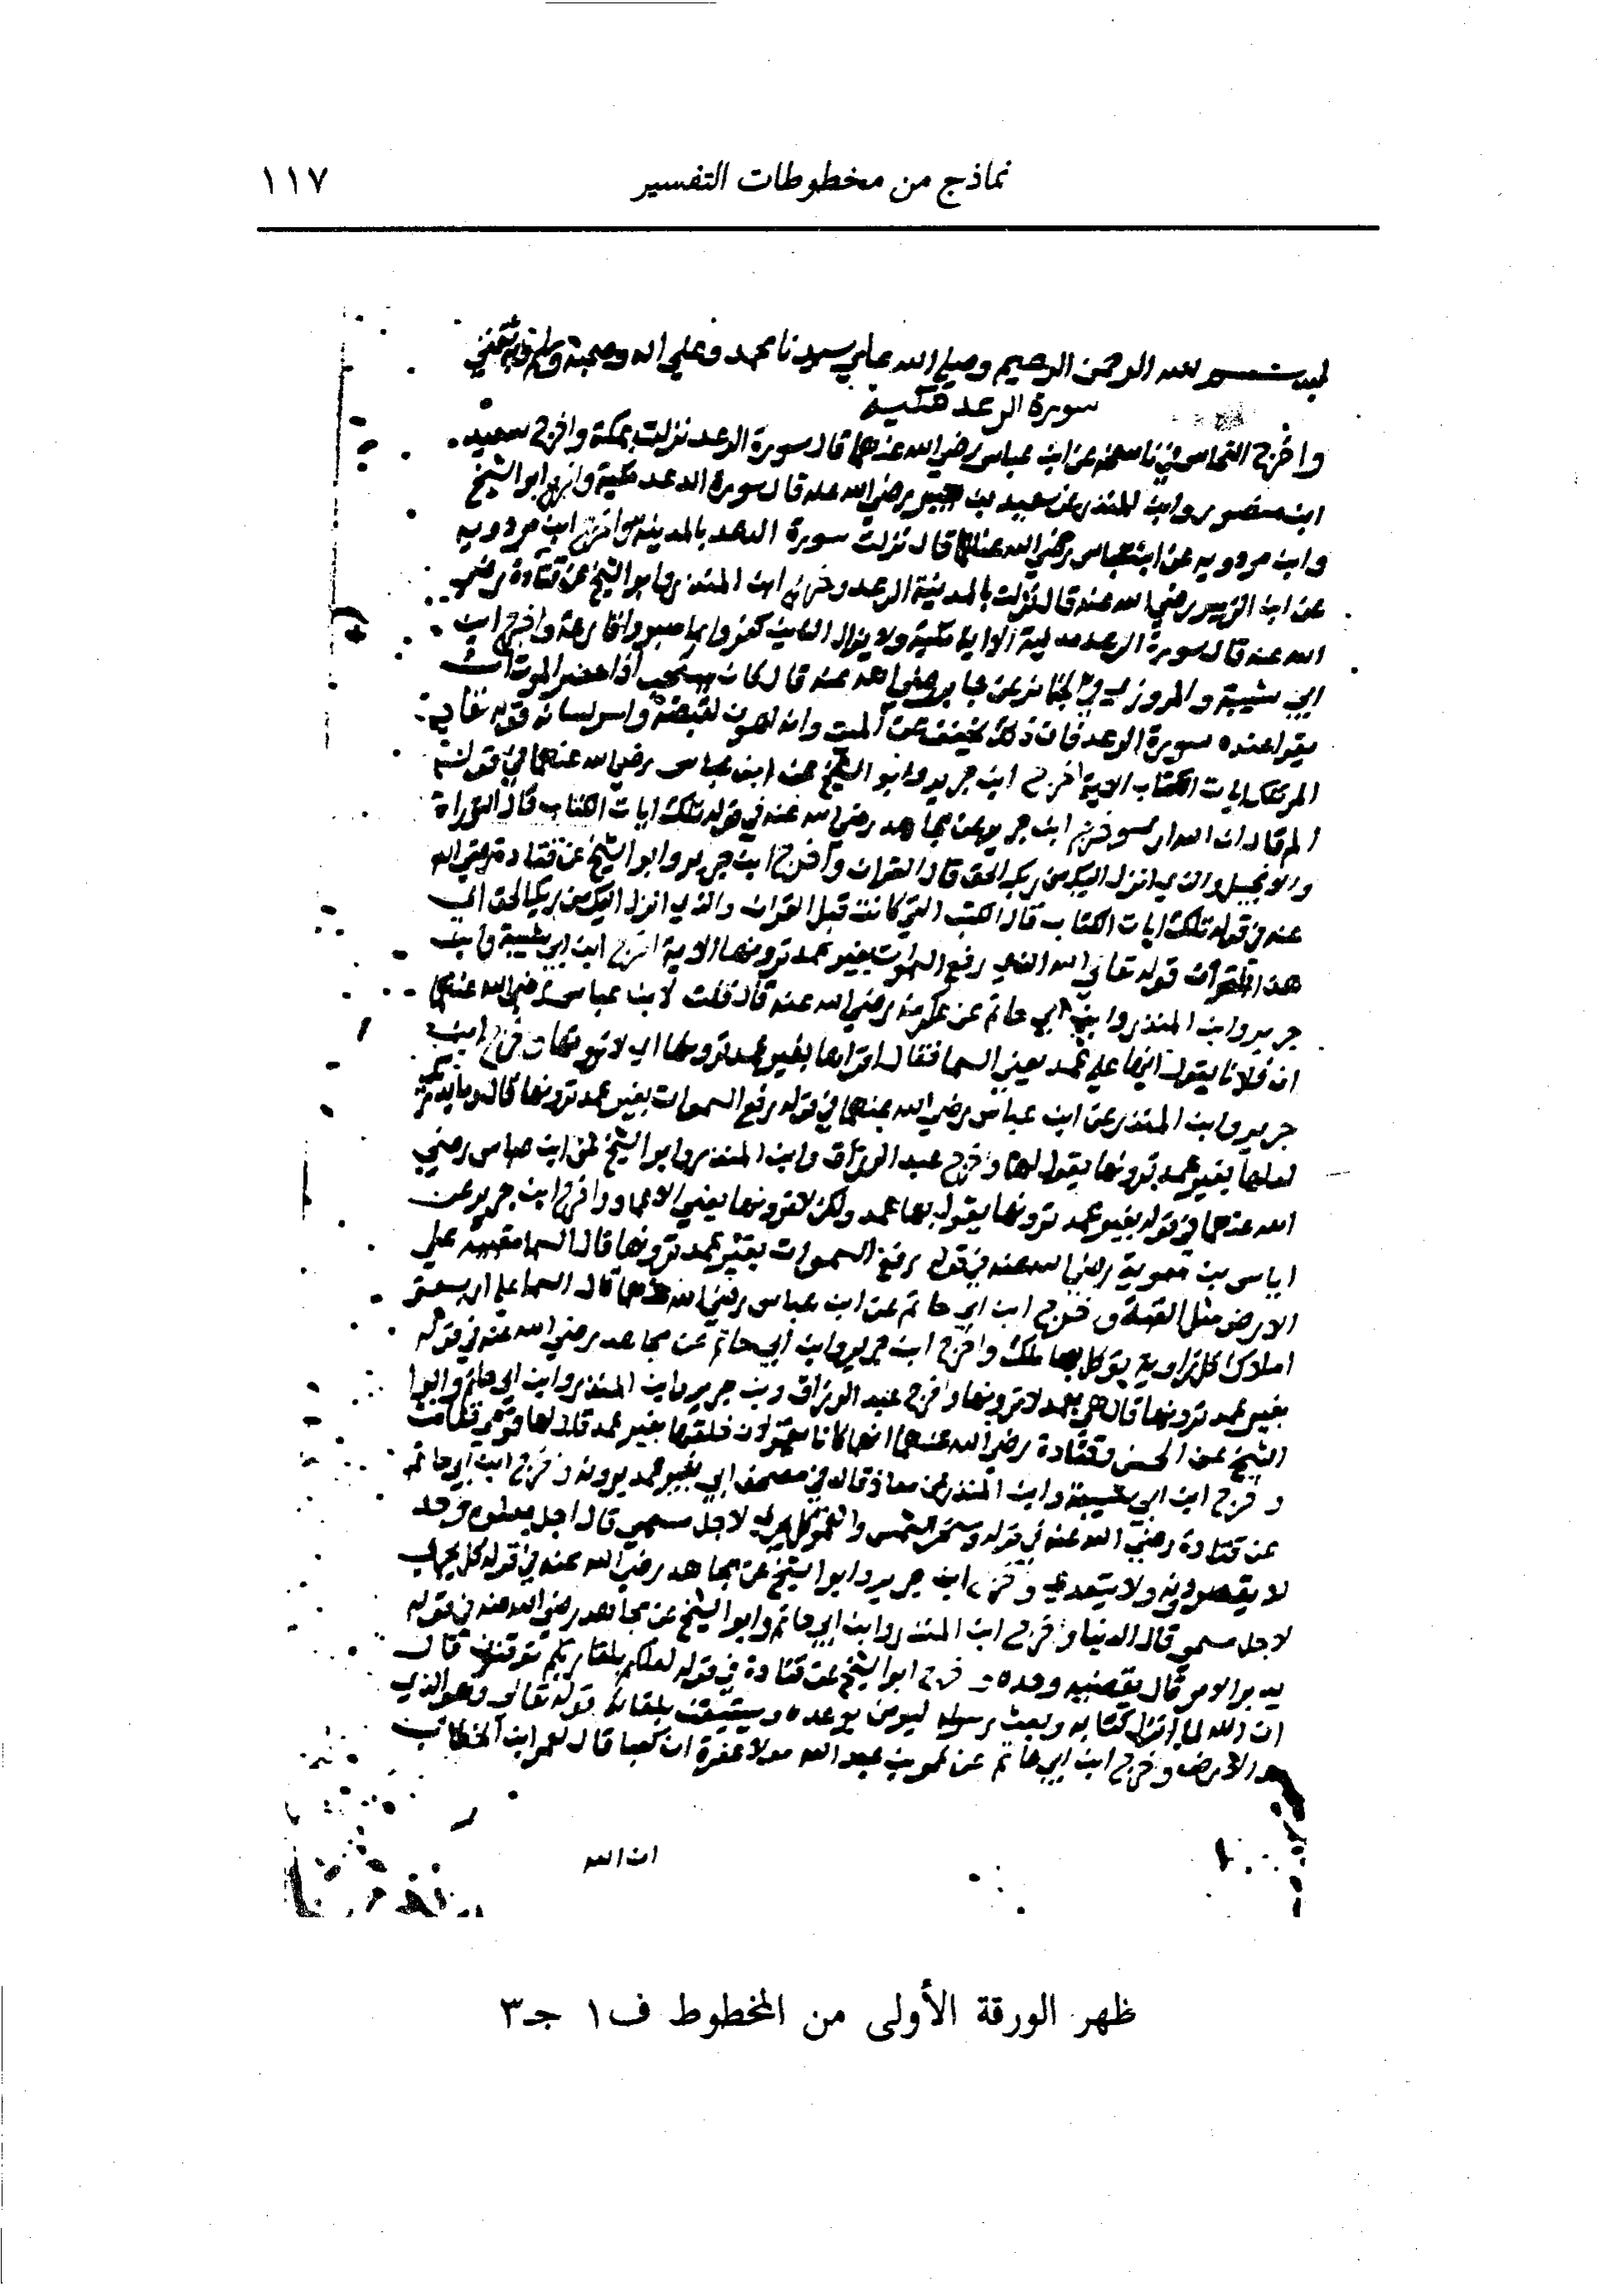 نماذج من مخطوطات التفسير ١١٧
بسم الله الرحمن الرحيم وصلي الله علي سيدنا محمد وعلي اله وصحبه وسلم
سورة الرعد مكية
واخرج النحاس في ناسخه عن ابن عباس رضي الله عنهما قال سورة الرعد نزلت بمكة واخرج سعيد
ابن منصور وابن المنذر عن سعيد بن جبير رضي الله عنه قال سورة الرعد مكية واخرج ابو الشيخ
وابن مردويه عن ابن عباس رضي الله عنهما قال نزلت سورة الرعد بالمدينة واخرج ابن مردويه
عن ابن الزبير رضي الله عنه قال نزلت بالمدينة الرعد وخرج ابن المنذر وابو الشيخ عن قتادة رضي
الله عنه قال سورة الرعد مدنية الا اية مكية ولا يزال الذين كفروا بما صنعوا قارعة واخرج ابن
ابي شيبة والمروزي في الجنائز عن جابر بن زيد رضي الله عنه قال كان يستحب اذا حضر الميت ان
يقرا عنده سورة الرعد فان ذلك يخفف عن الميت وانه اهون لقبضه وايسر لشانه قوله تعالي
المر تلك ايات الكتاب الاية اخرج ابن جرير وابو الشيخ عن ابن عباس رضي الله عنهما في قوله
المر قال ان الله اري وخرج ابن جرير عن مجاهد رضي الله عنه في قوله تلك ايات الكتاب قال التوراة
والانجيل والذي انزل اليك من ربك الحق قال القران واخرج ابن جرير وابو الشيخ عن قتادة رضي الله
عنه في قوله تلك ايات الكتاب قال الكتب التي كانت قبل القران والذي انزل اليك من ربك الحق اي
هذا القرآن قوله تعالي الله الذي رفع السموات بغير عمد ترونها الاية اخرج ابن ابي شيبة وابن
جرير وابن المنذر وابن ابي حاتم عن عكرمة رضي الله عنه قال قلت لابن عباس رضي الله عنهما
ان فلانا يقول انها علي عمد يعني السما فقال اقراها بغير عمد ترونها اي لا ترونها وخرج ابن
جرير وابن المنذر عن ابن عباس رضي الله عنهما في قوله رفع السموات بغير عمد ترونها قال وما يدريك
لعلها بغير عمد ترونها يقول لها وخرج عبد الرزاق وابن المنذر وابو الشيخ عن ابن عباس رضي
الله عنهما في قوله بغير عمد ترونها يقول لها عمد ولكن لا ترونها يعني الاعماد واخرج ابن جرير عن
اياس بن معوية رضي الله عنه في قوله رفع السموات بغير عمد ترونها قال السما مقببة علي
الارض مثل القبة وخرج ابن ابي حاتم عن ابن عباس رضي الله عنهما قال السما علي اربعة
املاك كل زاوية يوكل بها ملك واخرج ابن جرير وابن ابي حاتم عن مجاهد رضي الله عنه في قوله
بغير عمد ترونها قال هي بعمد لا ترونها واخرج عبد الرزاق وبن جرير وابن المنذر وابن ابي حاتم وابوا
الشيخ عن الحسن وقتادة رضي الله عنهما انهما كانا يقولان خلقها بغير عمد قال لها قومي فقامت
وخرج ابن ابي شيبة وابن المنذر عن معاذ قال في مصحف ابي بغير عمد يرونه وخرج ابن ابي حاتم
عن قتادة رضي الله عنه في قوله وسخر الشمس والقمر كل يجري لاجل مسمي قال اجل معلوم وحد
لا يقصر دونه ولا يتعدي وخرج ابن جرير وابوا الشيخ عن مجاهد رضي الله عنه في قوله كل يجري
لاجل مسمي قال الدنيا وخرج ابن المنذر وابن ابي حاتم وابو الشيخ عن مجاهد رضي الله عنه في قوله
يدبر الامر قال يقضيه وحده وخرج ابوا الشيخ عن قتادة في قوله لعلكم بلقا ربكم توقنون قال
ان الله لما انزل كتابه وبعث رسوله ليومن بوعده ويستيقن بلقائه قوله تعالي وهو الذي
مد الارض وخرج ابن ابي حاتم عن عمر بن عبد الله مولا غفرة ان كعبا قال لعمر ابن الخطاب
ان الله
ظهر الورقة الأولى من المخطوط ف١ جـ٣